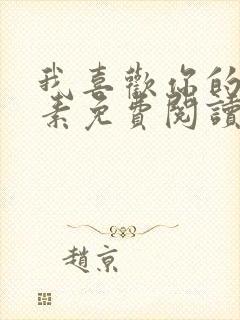 我喜歡你的
素免費閱讀
趙京